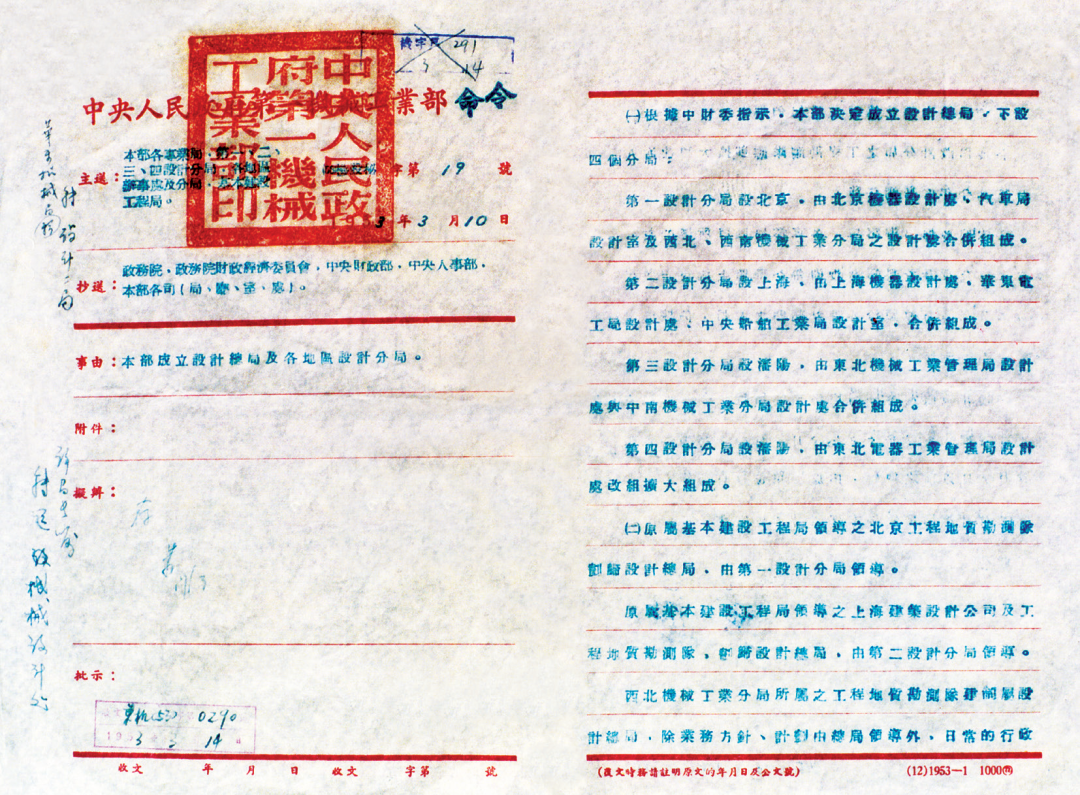 機字第 291
3 14
中央人民政府第一機械工業部 命令
中央人民政府第一機械工業部印
主送：
本部各專業局、第一、二、
三、四設計分局、各地區
辦事處及分局、基本建設
工程局。
字第 19 號
1953 年 3 月 10 日
抄送：
政務院，政務院財政經濟委員會，中央財政部，中央人事部，
本部各司（局、廳、室、處）。
事由：本部成立設計總局及各地區設計分局。
附件：
擬辦：
存
批示：
0290
3 14
收文 年 月 日 收文 字第 號
㈠根據中財委指示，本部決定成立設計總局，下設
四個分局：
第一設計分局設北京，由北京機器設計處、汽車局
設計室及西北、西南機械工業分局之設計處合併組成。
第二設計分局設上海，由上海機器設計處，華東電
工局設計處、中央船舶工業局設計室，合併組成。
第三設計分局設瀋陽，由東北機械工業管理局設計
處與中南機械工業分局設計處合併組成。
第四設計分局設瀋陽，由東北電器工業管理局設計
處改組擴大組成。
㈡原屬基本建設工程局領導之北京工程地質勘測隊
劃歸設計總局，由第一設計分局領導。
原屬基本建設工程局領導之上海建築設計公司及工
程地質勘測隊，劃歸設計總局，由第二設計分局領導。
西北機械工業分局所屬之工程地質勘測隊建制畢設
計總局，除業務方針、計劃由總局領導外，日常的行政
（復文時務請註明原文的年月日及公文號）
(12)1953—1 1000㊞